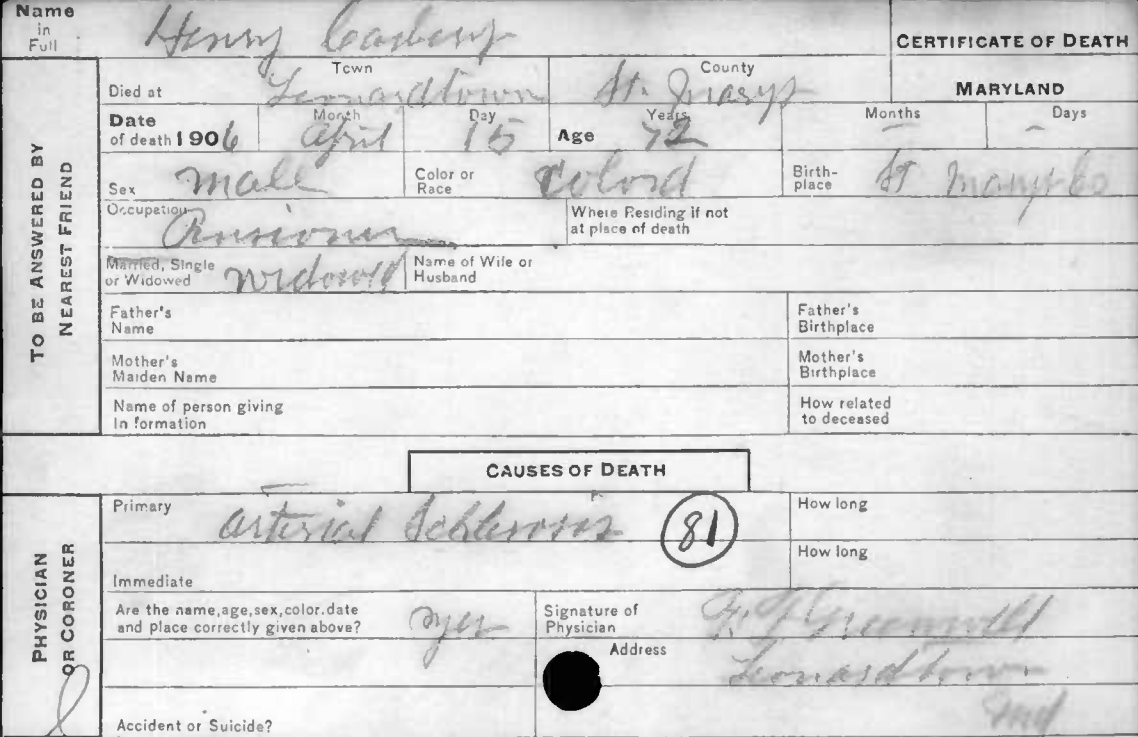 Name in Full Henry
CERTIFICATE OF DEATH
Died at Town Leonardtown County St. Marys MARYLAND
Date of death 1906 Month April Day 15 Age Years 72 Months - Days -
Sex male Color or Race Colord Birth-place St Marys Co
Occupation Pensioner Where Residing if not at place of death
Married, Single or Widowed Widowed Name of Wife or Husband
Father's Name Father's Birthplace
Mother's Maiden Name Mother's Birthplace
Name of person giving In formation How related to deceased
TO BE ANSWERED BY NEAREST FRIEND
CAUSES OF DEATH
Primary arterial 81 How long
Immediate How long
Are the name,age,sex,color.date and place correctly given above? yes Signature of Physician Greenwell
Address Leonardtown
Md
Accident or Suicide?
PHYSICIAN OR CORONER